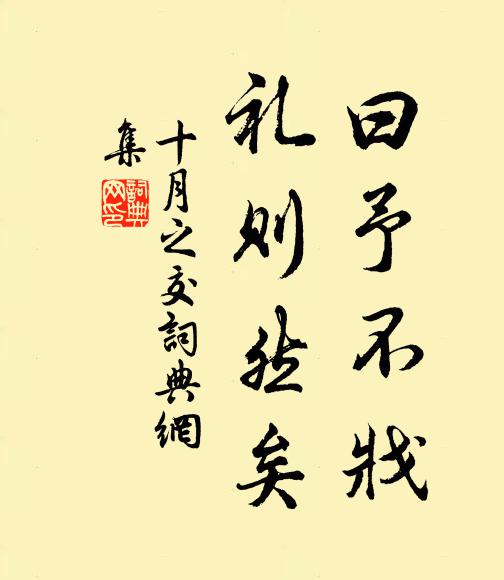 曰予不戕
礼则然矣
十月之交詞典網
集
詞典
网印